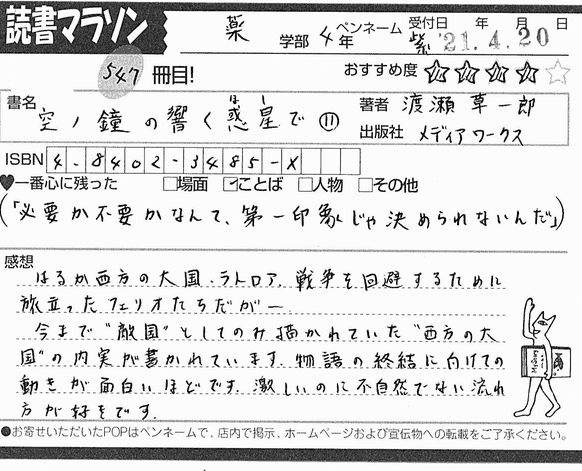 読書マラソン
薬 学部 4年 ペンネーム 紫 受付日 年 月 日
'21.4.20
547 冊目! おすすめ度 ★★★★☆
書名 空ノ鐘の響く惑星で ⑪
ほし
著者 渡瀬草一郎
出版社 メディアワークス
ISBN 4-8402-3485-X
♥一番心に残った □場面 ☑ことば □人物 □その他
(「必要か不要かなんて、第一印象じゃ決められないんだ」)
感想
はるか西方の大国、ラトロア。戦争を回避するために
旅立ったフェリオたちだが―
今まで"敵国"としてのみ描かれていた"西方の大
国"の内実が書かれています。物語の終結に向けての
動きが面白いほどです。激しいのに不自然でない流れ
方が好きです。
●お寄せいただいたPOPはペンネームで、店内で掲示、ホームページおよび宣伝物への転載をご了承ください。